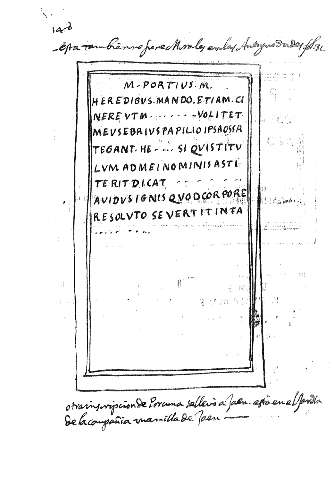 esta tambien no pone Morales en las Antiguedades fol. 31
M·PORTIUS·M.
HEREDIBUS·MANDO·ETIAM·CI
NEREUTM········VOLITET
MEUSEBRIUSPAPILIOIPSAOSSA
TEGANT·HE····SIQUISTITU
LUMADMEINOMINISASTI
TERITDICAT
AVIDUSIGNISQUODCORPORE
RESOLUTO SEVERTITINFA
otra inscripcion de Porcuna se llevo a Jaen. esta en el
de la compañia de Jaen